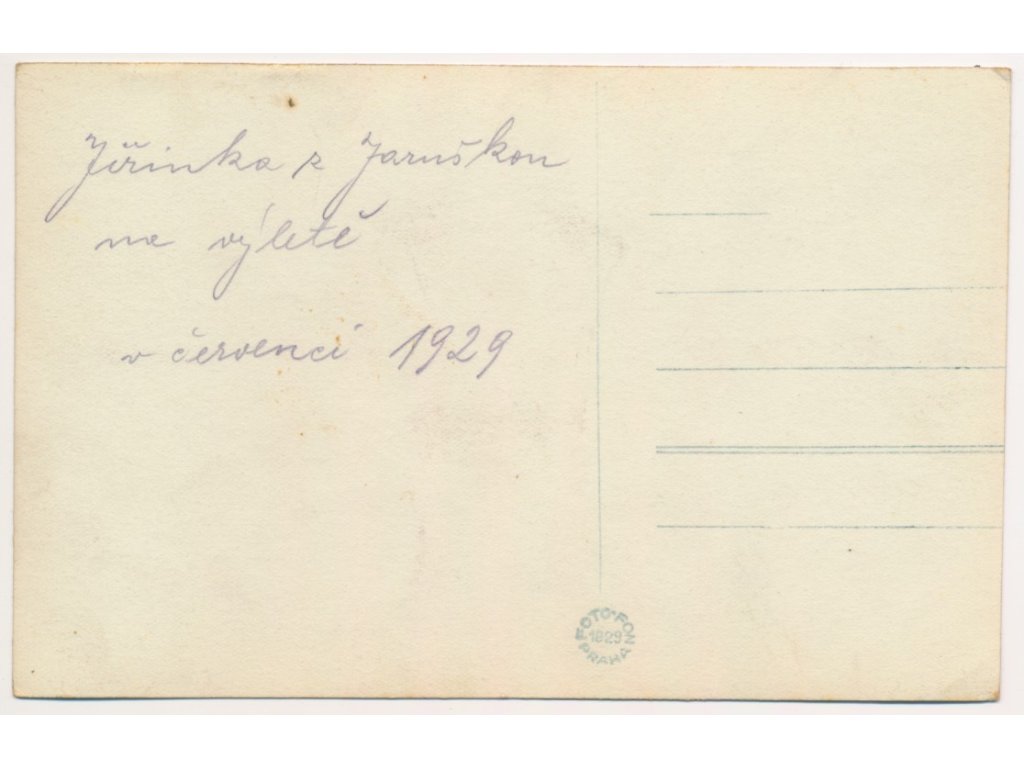 Jiřinka z Jaruškou
na výletě
v červenci 1929
FOTO-FON
1829
PRAHA